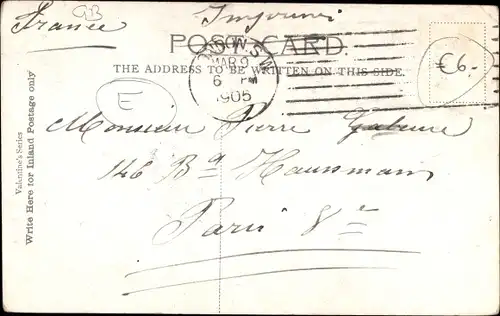 GB
France
Imprimé
POST CARD.
LONDON S.W.
MAR 9
6 PM
1905
€6-
THE ADDRESS TO BE WRITTEN ON THIS SIDE.
E
Valentine's Series
Write Here for Inland Postage only
Monsieur Pierre
146 Bd Haussmann
Paris 8e